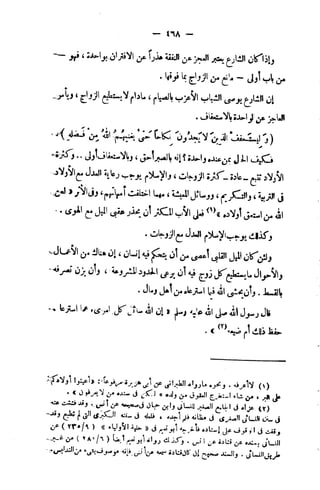 — ٤٦٨ —
وإذا كان الشارع يعتبر العجز عن النفقة عذراً عن الاقتران بواحدة ، فهو —
من باب أولى — مانع من الزواج بما فوقها .
إن الشارع يوصى الشباب الأعزب بالصيام ، مادام لا يستطيع الزواج ، ويأمر
العاجز عن لواحدة بالاستعفاف .
( وَلْيَسْتَعْفِفِ الَّذِينَ لَا يَجِدُونَ نِكَاحًا حَتَّىٰ يُغْنِيَهُمُ اللَّهُ مِن فَضْلِهِ ) .
فكيف الحال بمن عنده واحدة ؟ إنه بالصبر أحق ، وبالاستعفاف أولى . . وكثرة
الأولاد تتبع — عادة — كثرة الزوجات ، والإسلام يوجب رعاية العدل مع الأولاد
فى التربية ، والتكريم ، ووسائل المعيشة ، مهما اختلفت أمهاتهم ، وفى الأثر « لعن
الله من استعق أولاده »(١) فعلى الأب المكثر أن يحذر عقبى الميل مع الهوى . .
وكذلك يوجب الإسلام العدل مع الزوجات .
ولئن كان الميل القلبى أعصى من أن يتحكم فيه إنسان ، إن هناك من الأعمال
والأحوال ما يستطيع كل زوج فيه أن يرعى الحدود المشروعة ، وأن يزن تصرفه
بالقسط . وأن يخشى الله فيما استرعاه من أهل ومال .
قال رسول الله صلى الله عليه وسلم « إن الله سائل كل امرىء عما استرعاه .
حفظ ذلك أم ضيعه(٢) » .
(١) لا أعرفه . ونحوه ما رواه الطبرانى عن أبى هريرة مرفوعا : « أعينوا أولادكم
على البر ، من شاء استخرج العقوق من ولده » لكن فى سنده من لا يعرفون » .
(٢) عزاه فى الجامع الصغير للنسائى وابن حبان فى صحيحه عن أنس . وقد فتشت عنه
فى سنن النسائى الصغرى فى مظانه فلم أجده ، فلعله فى سننه الكبرى التى لم تطبع وقد
وقفت على إسناده فأخرجه أبو نعيم فى « حلية الأولياء » ( ٦ / ٢٣٥ ) عن
النسائى بسنده عن قتادة عن أنس . وكذلك رواه أبو نعيم أيضاً ( ٦ / ٢٨٠ ) من غير
طريق النسائى . والسند صحيح إن كان قتادة سمعه من أنس فإنه موصوف بشىء من التدليس .